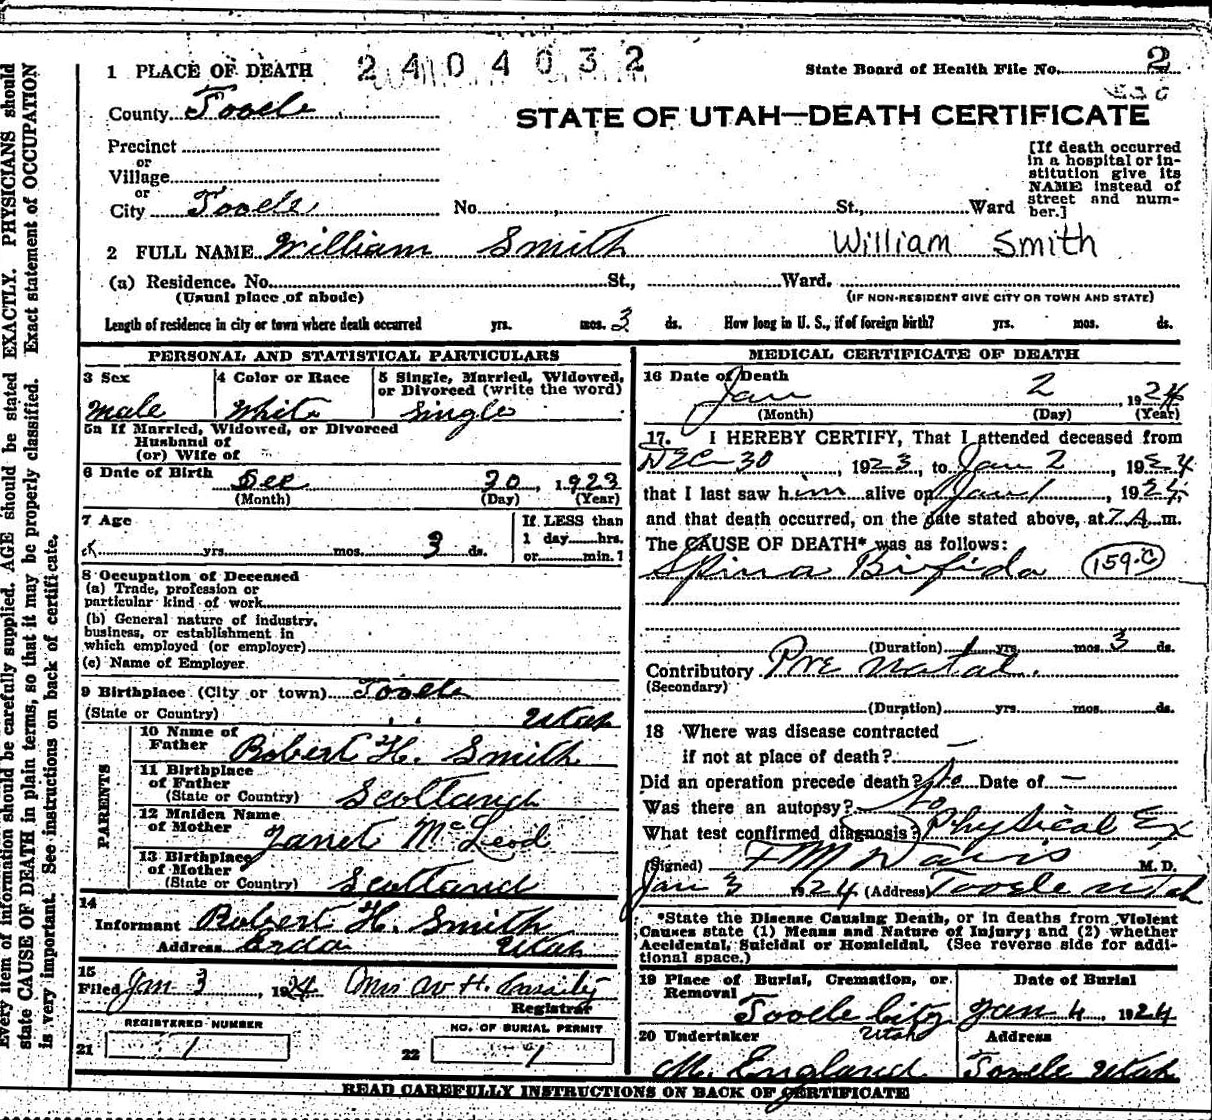 Every item of information should be carefully supplied. AGE should be stated EXACTLY. PHYSICIANS should
state CAUSE OF DEATH in plain terms, so that it may be properly classified. Exact statement of OCCUPATION
is very important. See instructions on back of certificate.
1 PLACE OF DEATH 2404032
State Board of Health File No. 2
County Tooele
STATE OF UTAH—DEATH CERTIFICATE
Precinct
or
Village
or
City Tooele No. St., Ward
[If death occurred
in a hospital or in-
stitution give its
NAME instead of
street and num-
ber.]
2 FULL NAME William Smith William Smith
(a) Residence. No. St., Ward.
(Usual place of abode) (IF NON-RESIDENT GIVE CITY OR TOWN AND STATE)
Length of residence in city or town where death occurred yrs. mos. 3 ds. How long in U. S., if of foreign birth? yrs. mos. ds.
PERSONAL AND STATISTICAL PARTICULARS
3 Sex
Male
4 Color or Race
White
5 Single, Married, Widowed,
or Divorced (write the word)
Single
5a If Married, Widowed, or Divorced
Husband of
(or) Wife of
6 Date of Birth Dec 30, 1923
(Month) (Day) (Year)
7 Age
yrs. mos. 3 ds.
If LESS than
1 day hrs.
or min.?
8 Occupation of Deceased
(a) Trade, profession or
particular kind of work
(b) General nature of industry,
business, or establishment in
which employed (or employer)
(c) Name of Employer
9 Birthplace (City or town) Tooele
(State or Country) Utah
PARENTS
10 Name of
Father Robert H. Smith
11 Birthplace
of Father
(State or Country) Scotland
12 Maiden Name
of Mother Janet McLeod
13 Birthplace
of Mother
(State or Country) Scotland
14
Informant Robert H. Smith
Address Erda Utah
15
Filed Jan 3, 1924
Registrar
REGISTERED NUMBER
21 1
NO. OF BURIAL PERMIT
22 1
MEDICAL CERTIFICATE OF DEATH
16 Date of Death
Jan 2 1924
(Month) (Day) (Year)
17. I HEREBY CERTIFY, That I attended deceased from
DEC-30, 1923, to Jan 2, 1924
that I last saw him alive on Jan 1, 1924
and that death occurred, on the date stated above, at 7 A.m.
The CAUSE OF DEATH* was as follows:
Spina Bifida 159·C
(Duration) yrs. mos. 3 ds.
Contributory Pre natal.
(Secondary)
(Duration) yrs. mos. ds.
18 Where was disease contracted
if not at place of death? —
Did an operation precede death? No Date of —
Was there an autopsy? No
What test confirmed diagnosis? Physical Ex
(Signed) F M Davis M.D.
Jan 3 1924 (Address) Tooele Utah
*State the Disease Causing Death, or in deaths from Violent
Causes state (1) Means and Nature of Injury; and (2) whether
Accidental, Suicidal or Homicidal. (See reverse side for addi-
tional space.)
19 Place of Burial, Cremation, or
Removal
Tooele City
Utah
Date of Burial
Jan 4, 1924
20 Undertaker
M. England
Address
Tooele Utah
READ CAREFULLY INSTRUCTIONS ON BACK OF CERTIFICATE